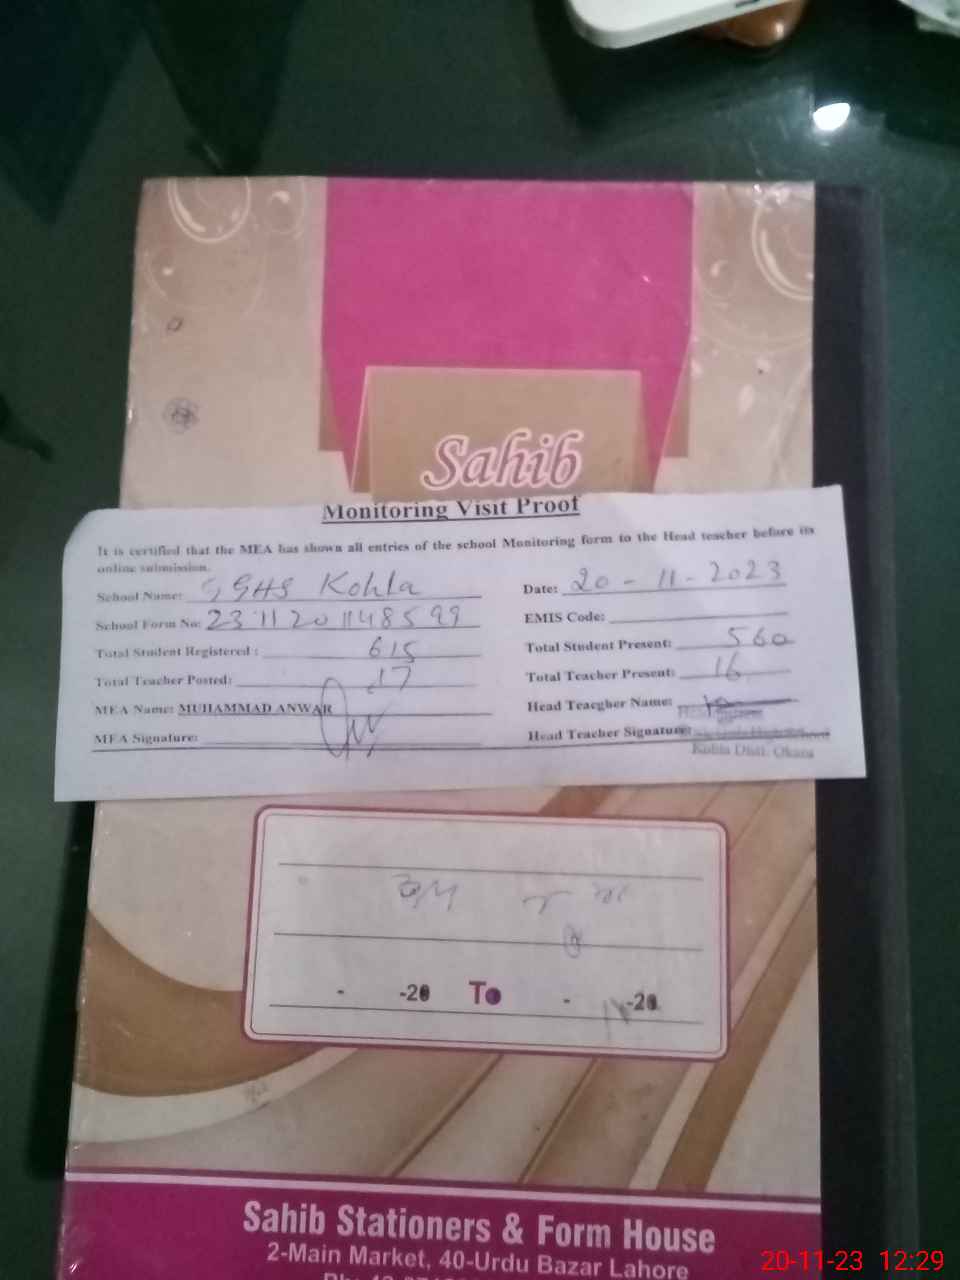 Sahib
Monitoring Visit Proof
It is certified that the MEA has shown all entries of the school Monitoring form to the Head teacher before its
online submission.
School Name: GGHS Kohla
Date: 20-11-2023
School Form No: 23112011148599
EMIS Code:
Total Student Registered : 615
Total Student Present: 560
Total Teacher Posted: 17
Total Teacher Present: 16
MEA Name: MUHAMMAD ANWAR
Head Teacgher Name:
MEA Signature:
Head Teacher Signature:
Kohla Distt. Okara
- -20 To - -20
Sahib Stationers & Form House
2-Main Market, 40-Urdu Bazar Lahore
20-11-23 12:29